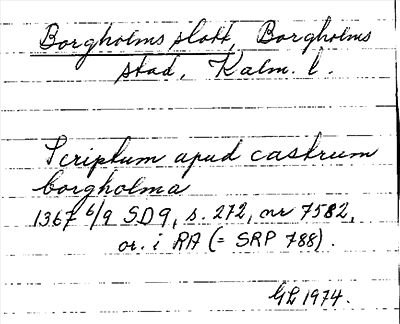 Borgholms slott, Borgholms
stad, Kalm. l.
Scriptum apud castrum
borgholma
1367 6/9 SD9, s. 272, nr 7582,
or. i RA (= SRP 788).
GL 1974.